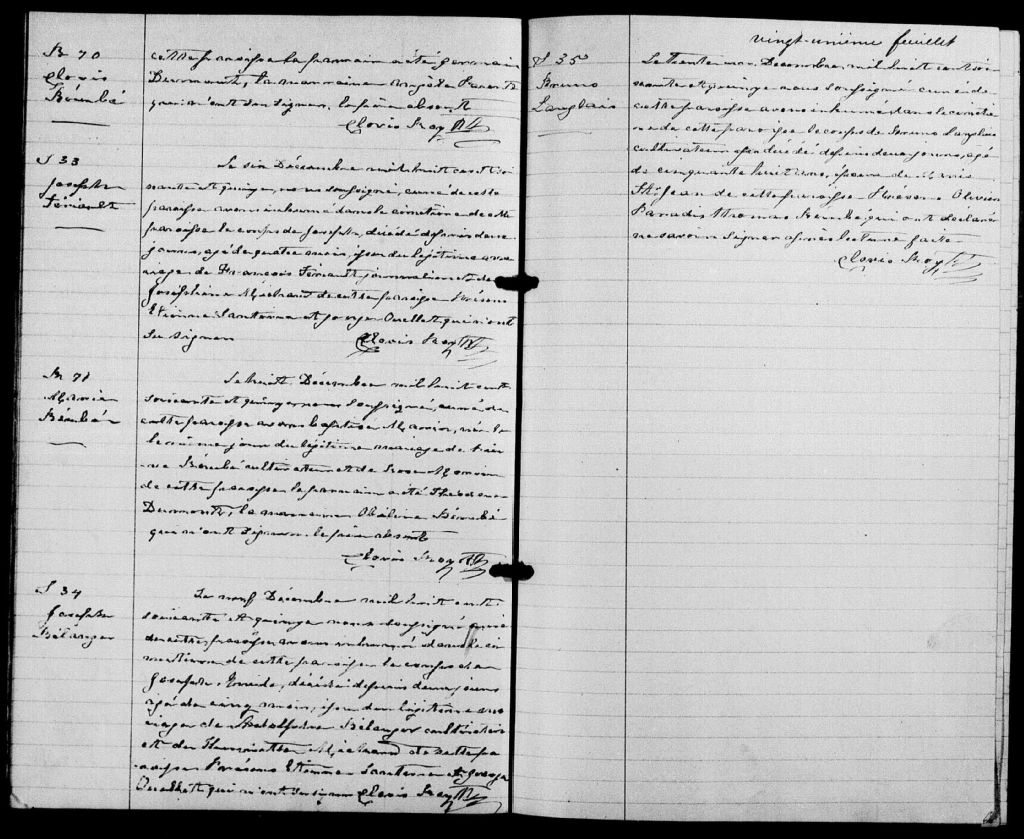 B 70
Clovis
Bérubé
cette paroisse le parrain a été Germain
Dumont, la marraine
qui n'ont su signer, le père absent
Clovis Roy Ptr
S 33
Joseph
Tériault
Le six Décembre mil huit cent soi
xante et quinze, nous soussigné, curé de cette
paroisse avons inhumé dans le cimetière de cette
paroisse le corps de Joseph, décédé depuis deux
jours, agé de quatre mois, issu du légitime ma
riage de François Tériault journalier et de
Joséphine Michaud de cette paroisse Présens
Etienne Santerre et George Ouellet qui n'ont
su signer
Clovis Roy Ptr
B 71
Marie
Bérubé
Le huit Décembre mil huit cent
soixante et quinze nous soussigné, curé de
cette paroisse avons baptisé Marie, née le
le même jour du légitime mariage de
Bérubé cultivateur et de Rose
de cette paroisse le parrain a été Theodore
Dumont, la marraine Obéline Bérubé
qui n'ont signer le père absent
Clovis Roy Ptr
S 34
Joseph
Bélanger
Le neuf Décembre mil huit cent
soixante et quinze nous soussigné curé
de cette paroisse avons inhumé dans le ci
metière de cette paroisse le corps de
Joseph décédé depuis deux jours
agé de cinq mois, issu du légitime ma
riage de Bélanger cultivateur
et de Henriette Michaud de cette pa
roisse Présens Etienne Santerre et George
Ouellet qui n'ont su signer Clovis Roy Ptr
vingt-unième feuillet
S 35
Bruno
Langlais
Le trente un Décembre mil huit cent soi
xante et quinze nous soussigné curé de
cette paroisse avons inhumé dans le cimetiè
re de cette paroisse le corps de Bruno Langlais
cultivateur décédé depuis deux jours, agé
de cinquante huit ans, époux de Marie
St Jean de cette paroisse Présens Olivier
Paradis Thomas Bérubé qui ont déclaré
ne savoir signer après lecture faite
Clovis Roy Ptr